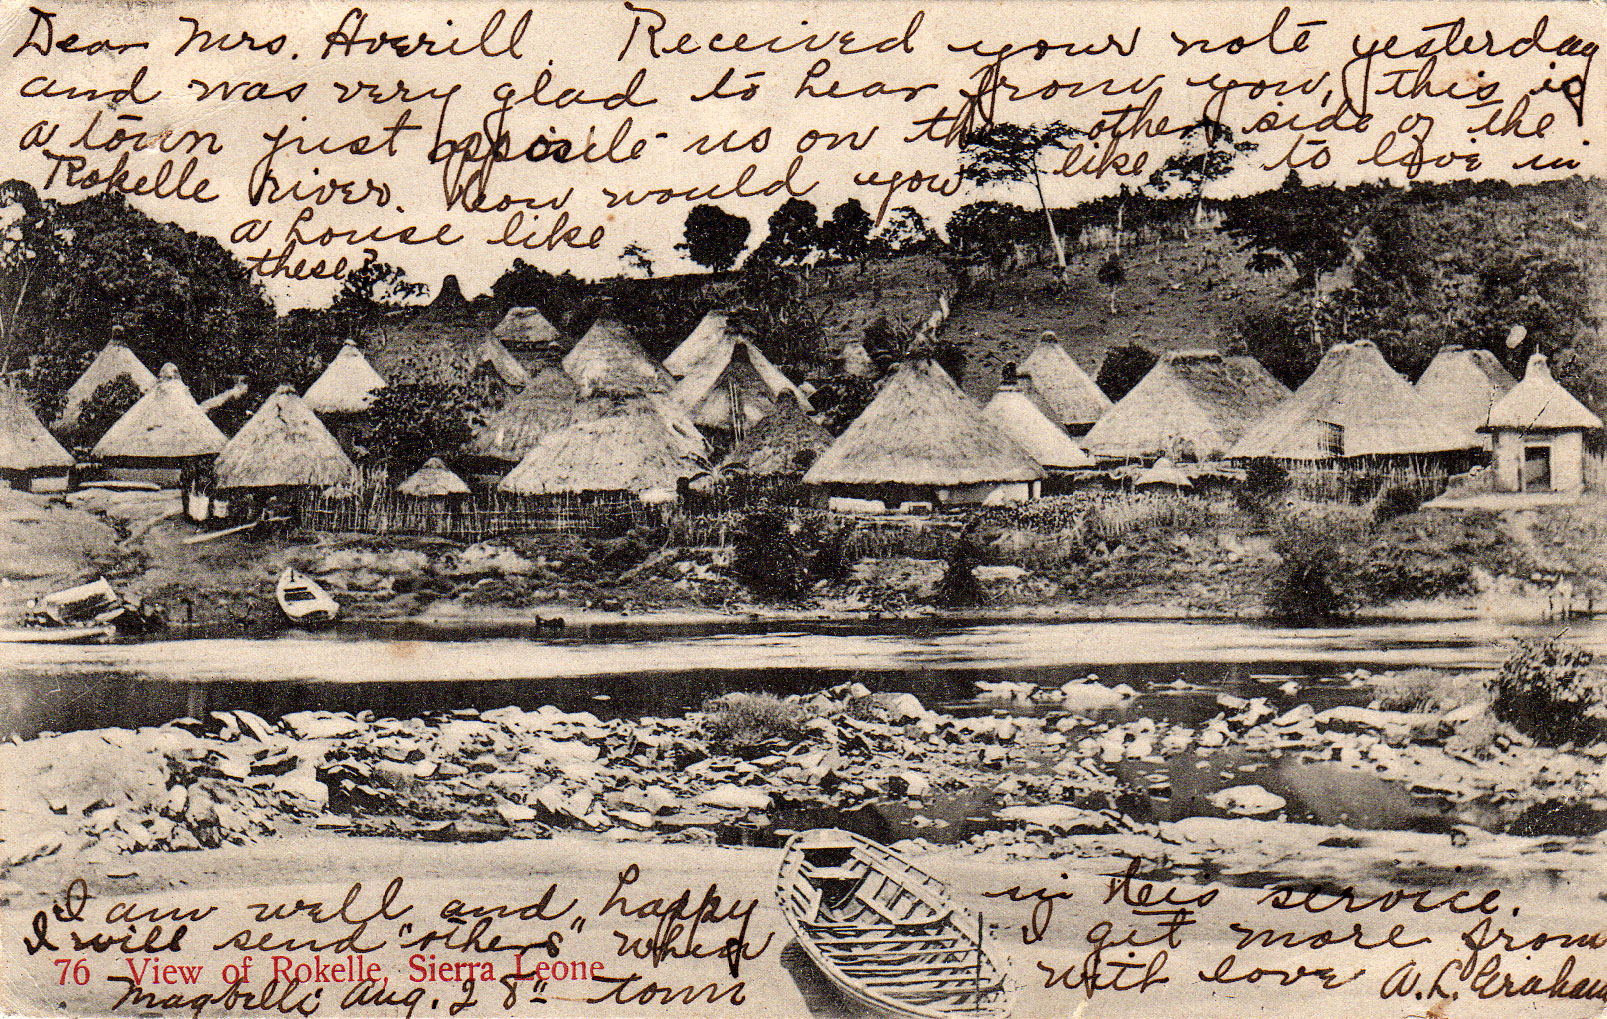 Dear Mrs. Averill. Received your note yesterday
and was very glad to hear from you, this is
a town just opposite us on the other side of the
Rokelle river. how would you like to live in
a house like
these?
I am well and happy in this service.
I will send "others" when I get more from
76 View of Rokelle, Sierra Leone
town with love A. L. Graham
Magbelli Aug. 28"